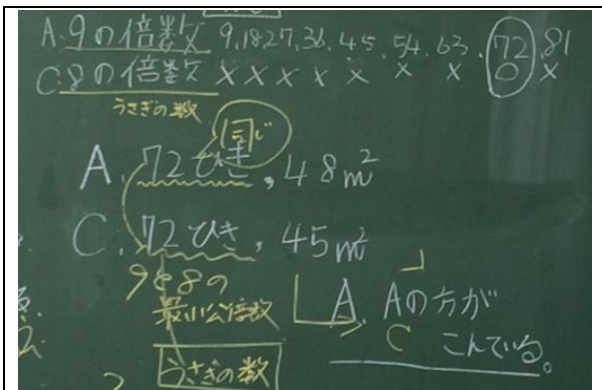 A.9の倍数 9,18,27,36,45,54,63,72,81
C.8の倍数 × × × × × × × ○ ×
うさぎの数
同じ
A.72ひき,48m²
C.72ひき,45m²
9と8の
最小公倍数
うさぎの数
A. Aの方が
C こんでいる。